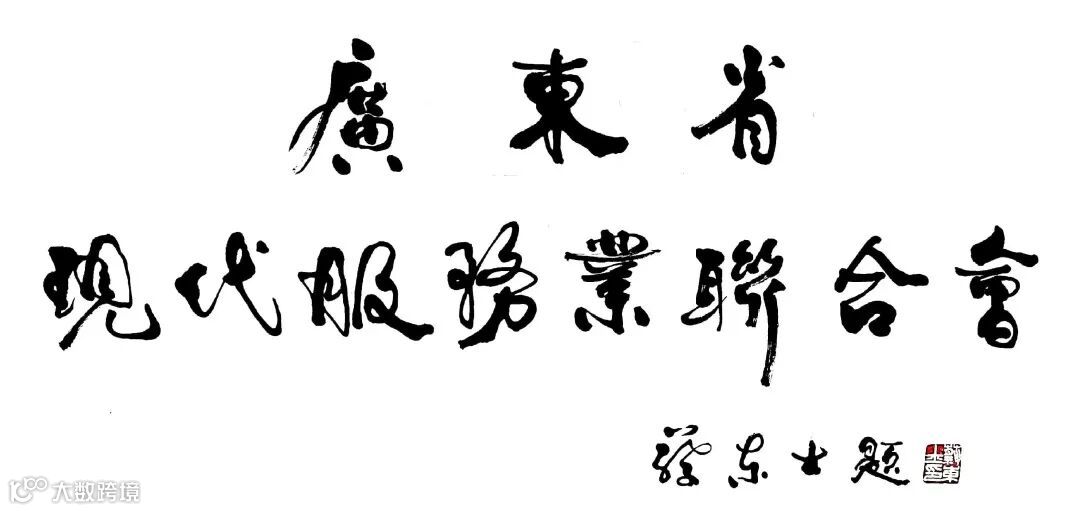 廣東省
現代服務業聯合會
蔡東士題
大数跨境